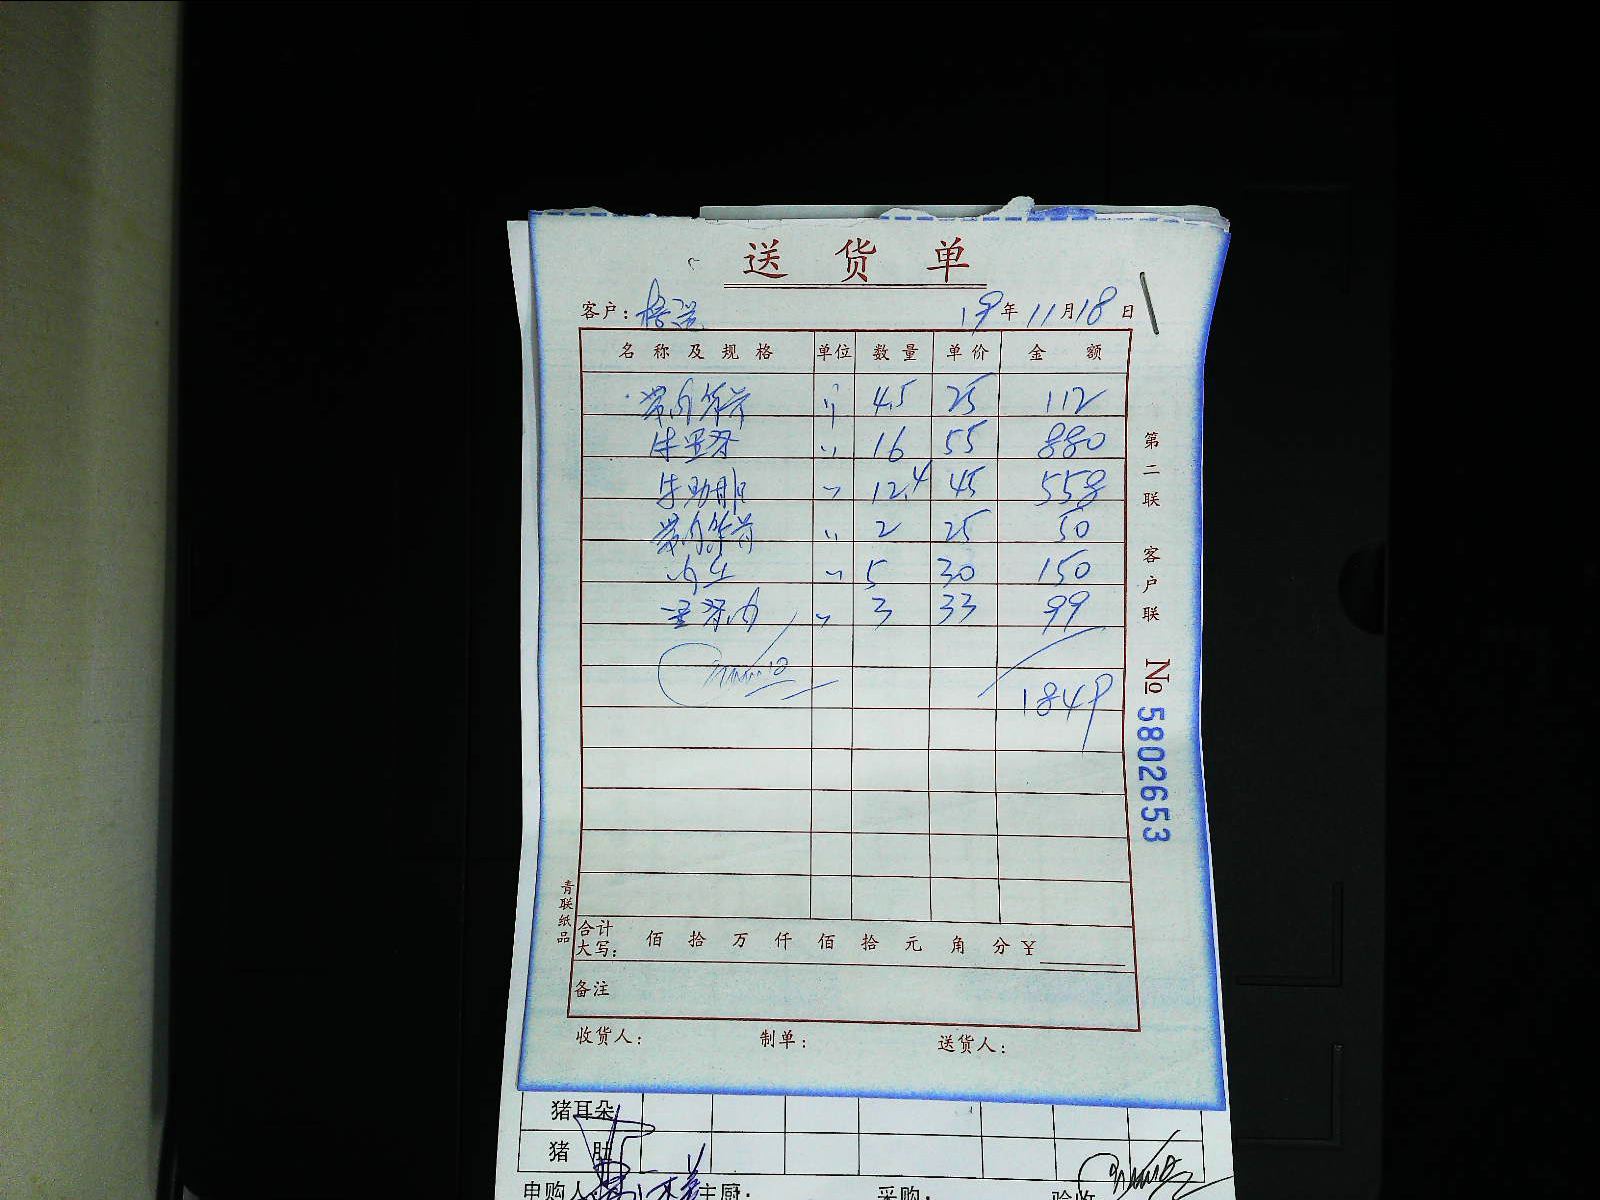 送货单
客户: 19年11月18日
名称及规格 单位 数量 单价 金额
带肉筒骨 〃 4.5 25 112
牛里脊 〃 16 55 880
牛肋排 〃 12.4 45 558
带肉筒骨 〃 2 25 50
〃 5 30 150
里脊肉 〃 3 33 99
1849
合计大写: 佰 拾 万 仟 佰 拾 元 角 分 ¥
备注
收货人: 制单: 送货人:
第二联 客户联
№ 5802653
青联纸品
猪耳朵
猪 肚
申购人 主厨: 采购: 验收